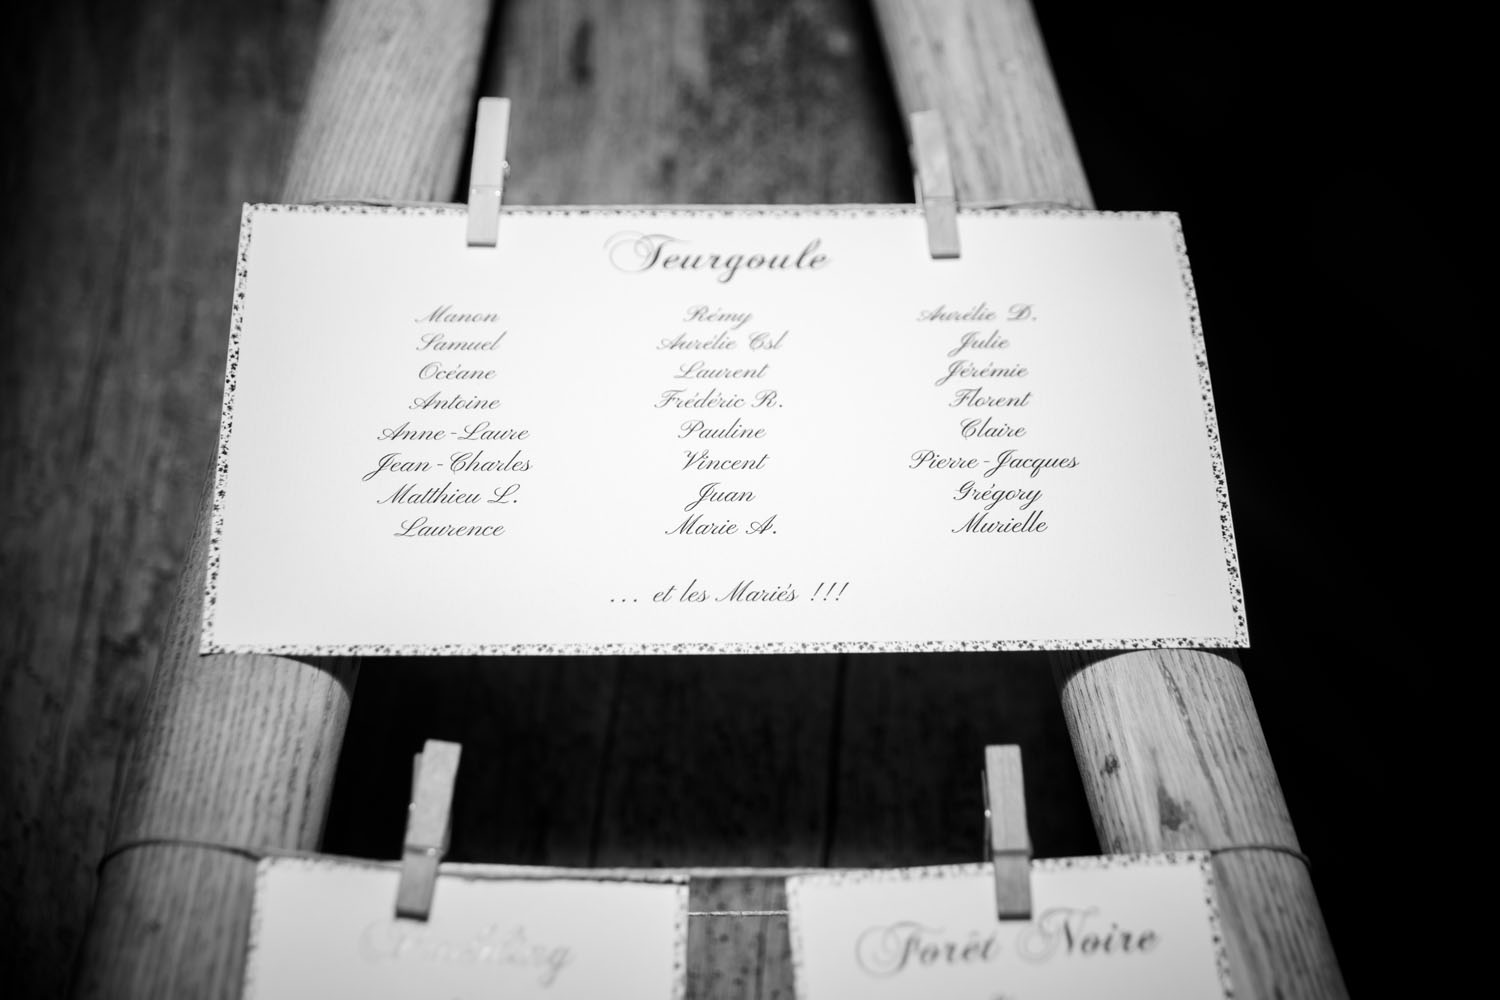 Teurgoule
Manon Rémy Aurélie D.
Samuel Aurélie Csl Julie
Océane Laurent Jérémie
Antoine Frédéric R. Florent
Anne-Laure Pauline Claire
Jean-Charles Vincent Pierre-Jacques
Matthieu L. Juan Grégory
Laurence Marie A. Murielle
... et les Mariés !!!
Forêt Noire